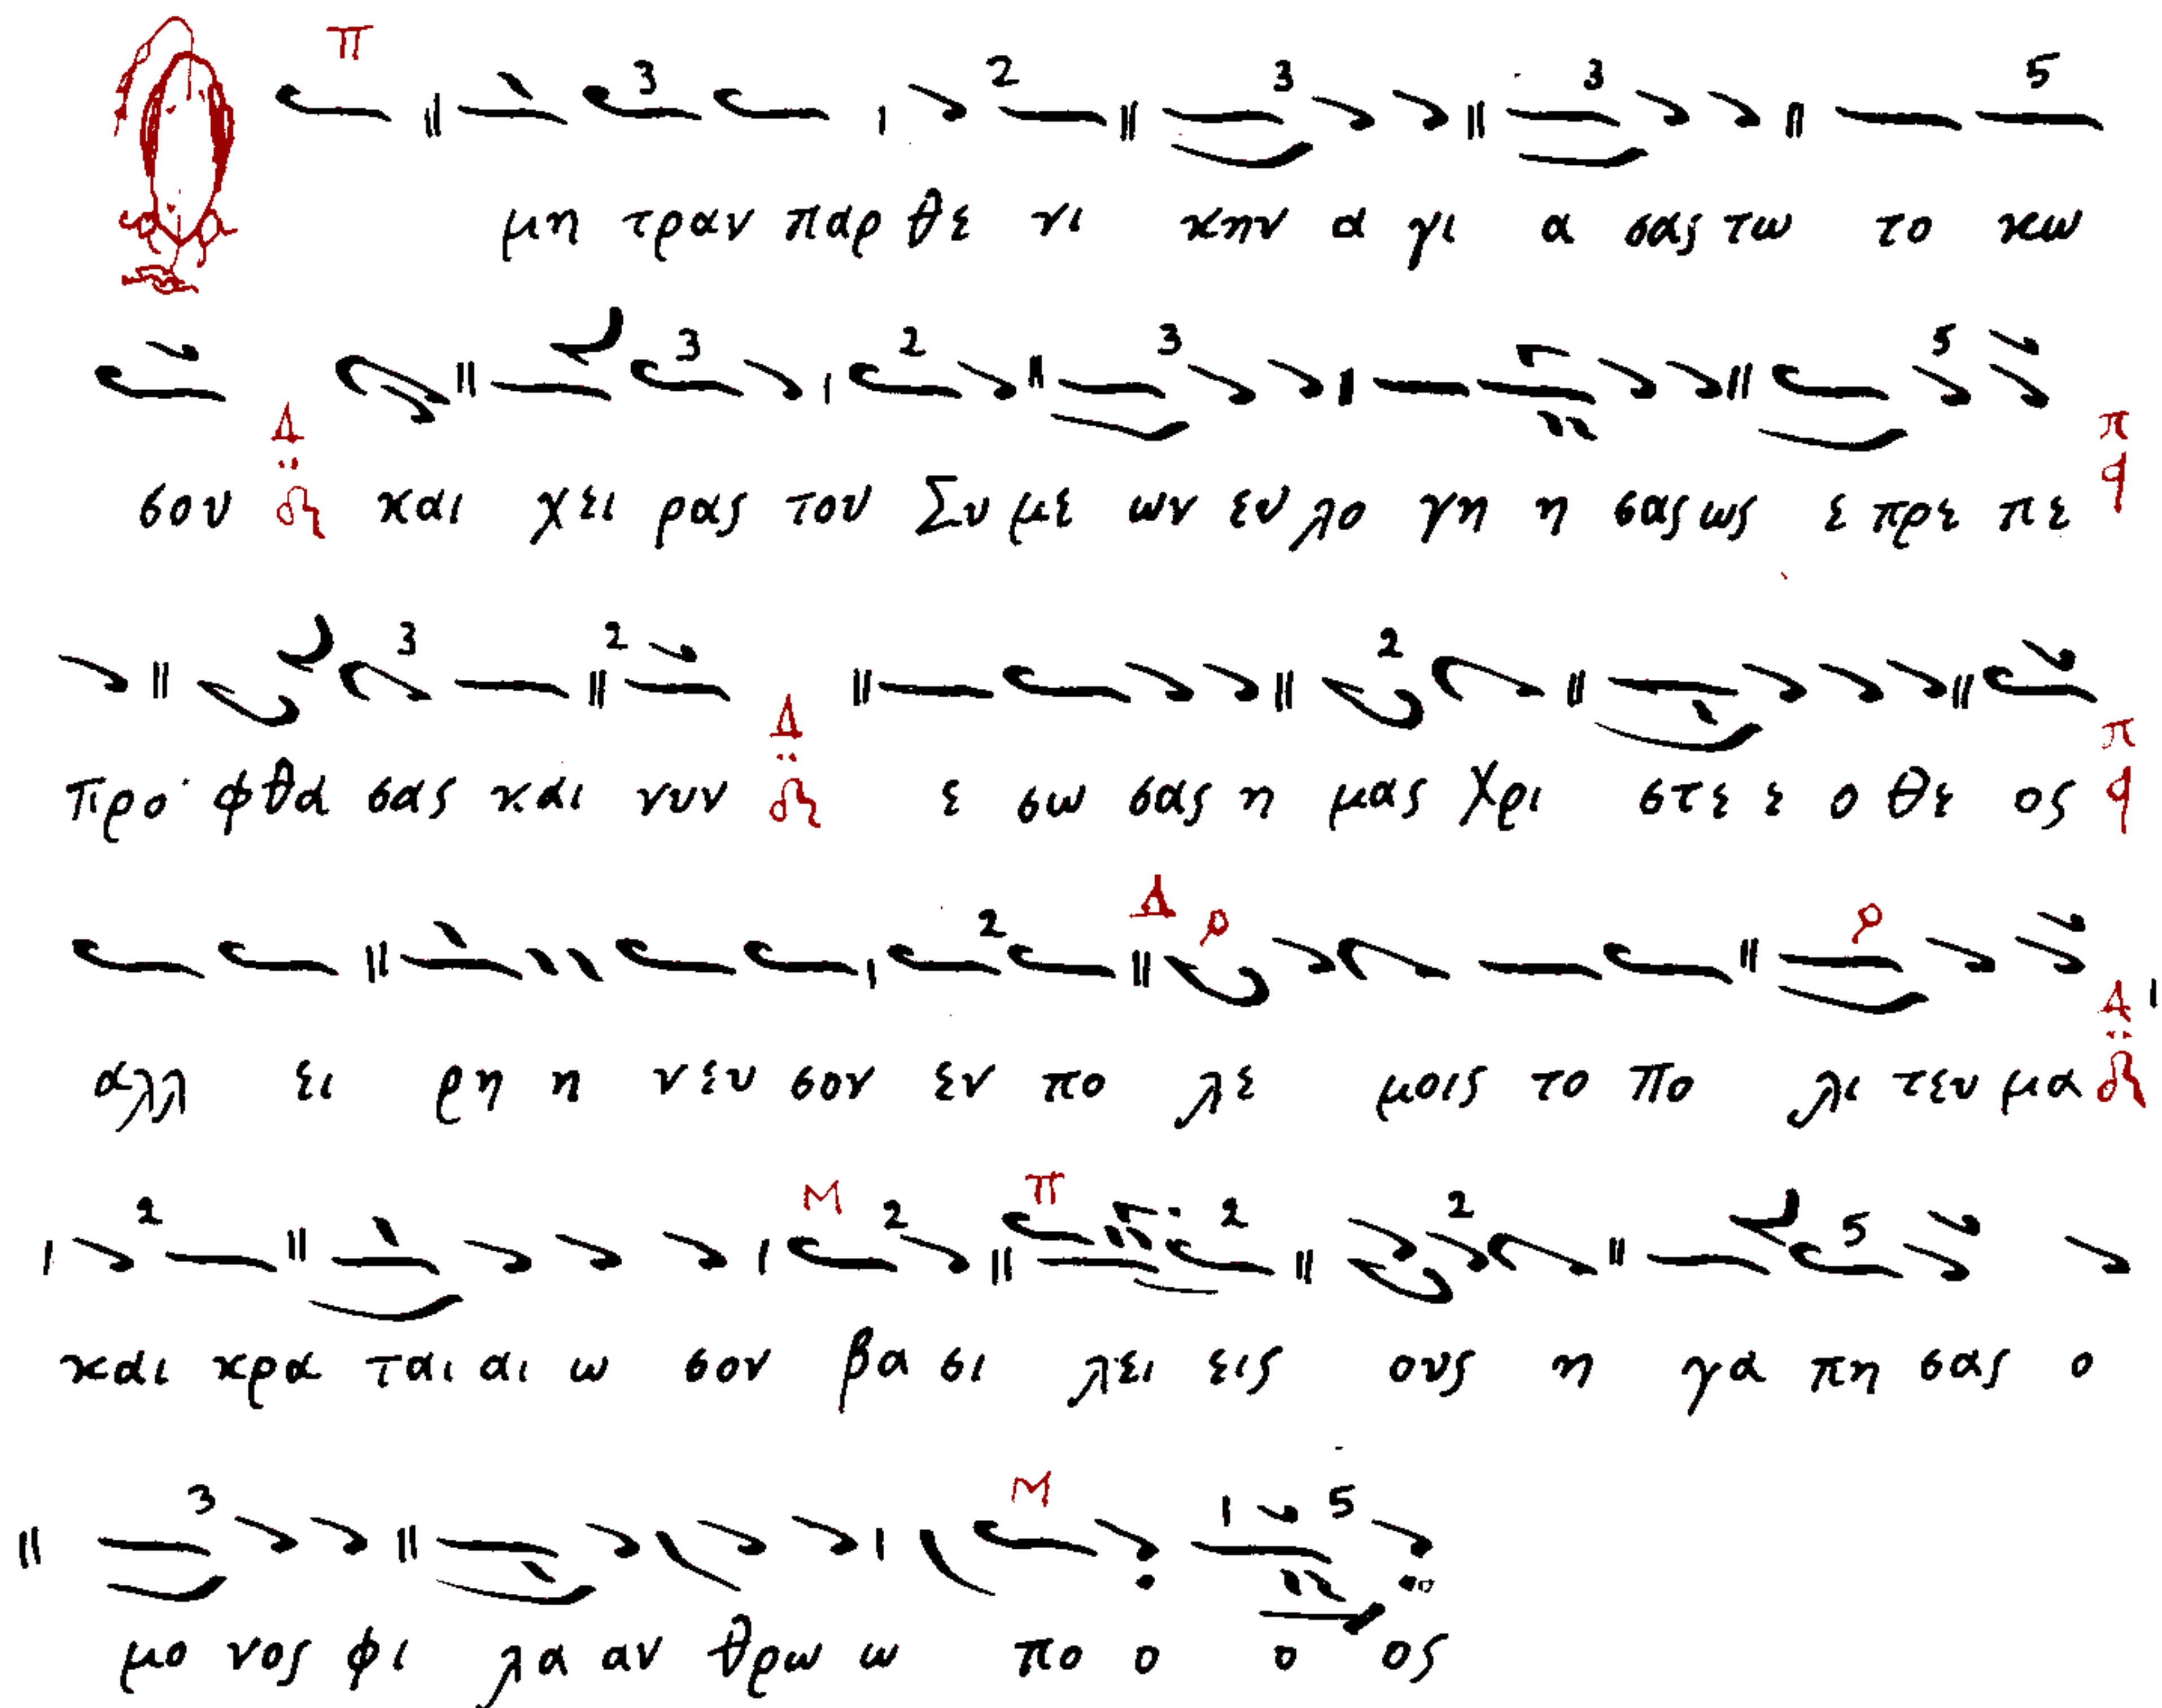 Ο μη τραν παρ θε νι κην α γι α σας τω το κω
σου και χει ρας του Συ με ων ευ λο γη η σας ως ε πρε πε
προ φθα σας και νυν ε σω σας η μας Χρι στε ε ο θε ος
αλλ ει ρη η νευ σον εν πο λε μοις το πο λι τευ μα
και κρα ται αι ω σον βα σι λει εις ους η γα πη σας ο
μο νος φι λα αν θρω ω πο ο ο ος